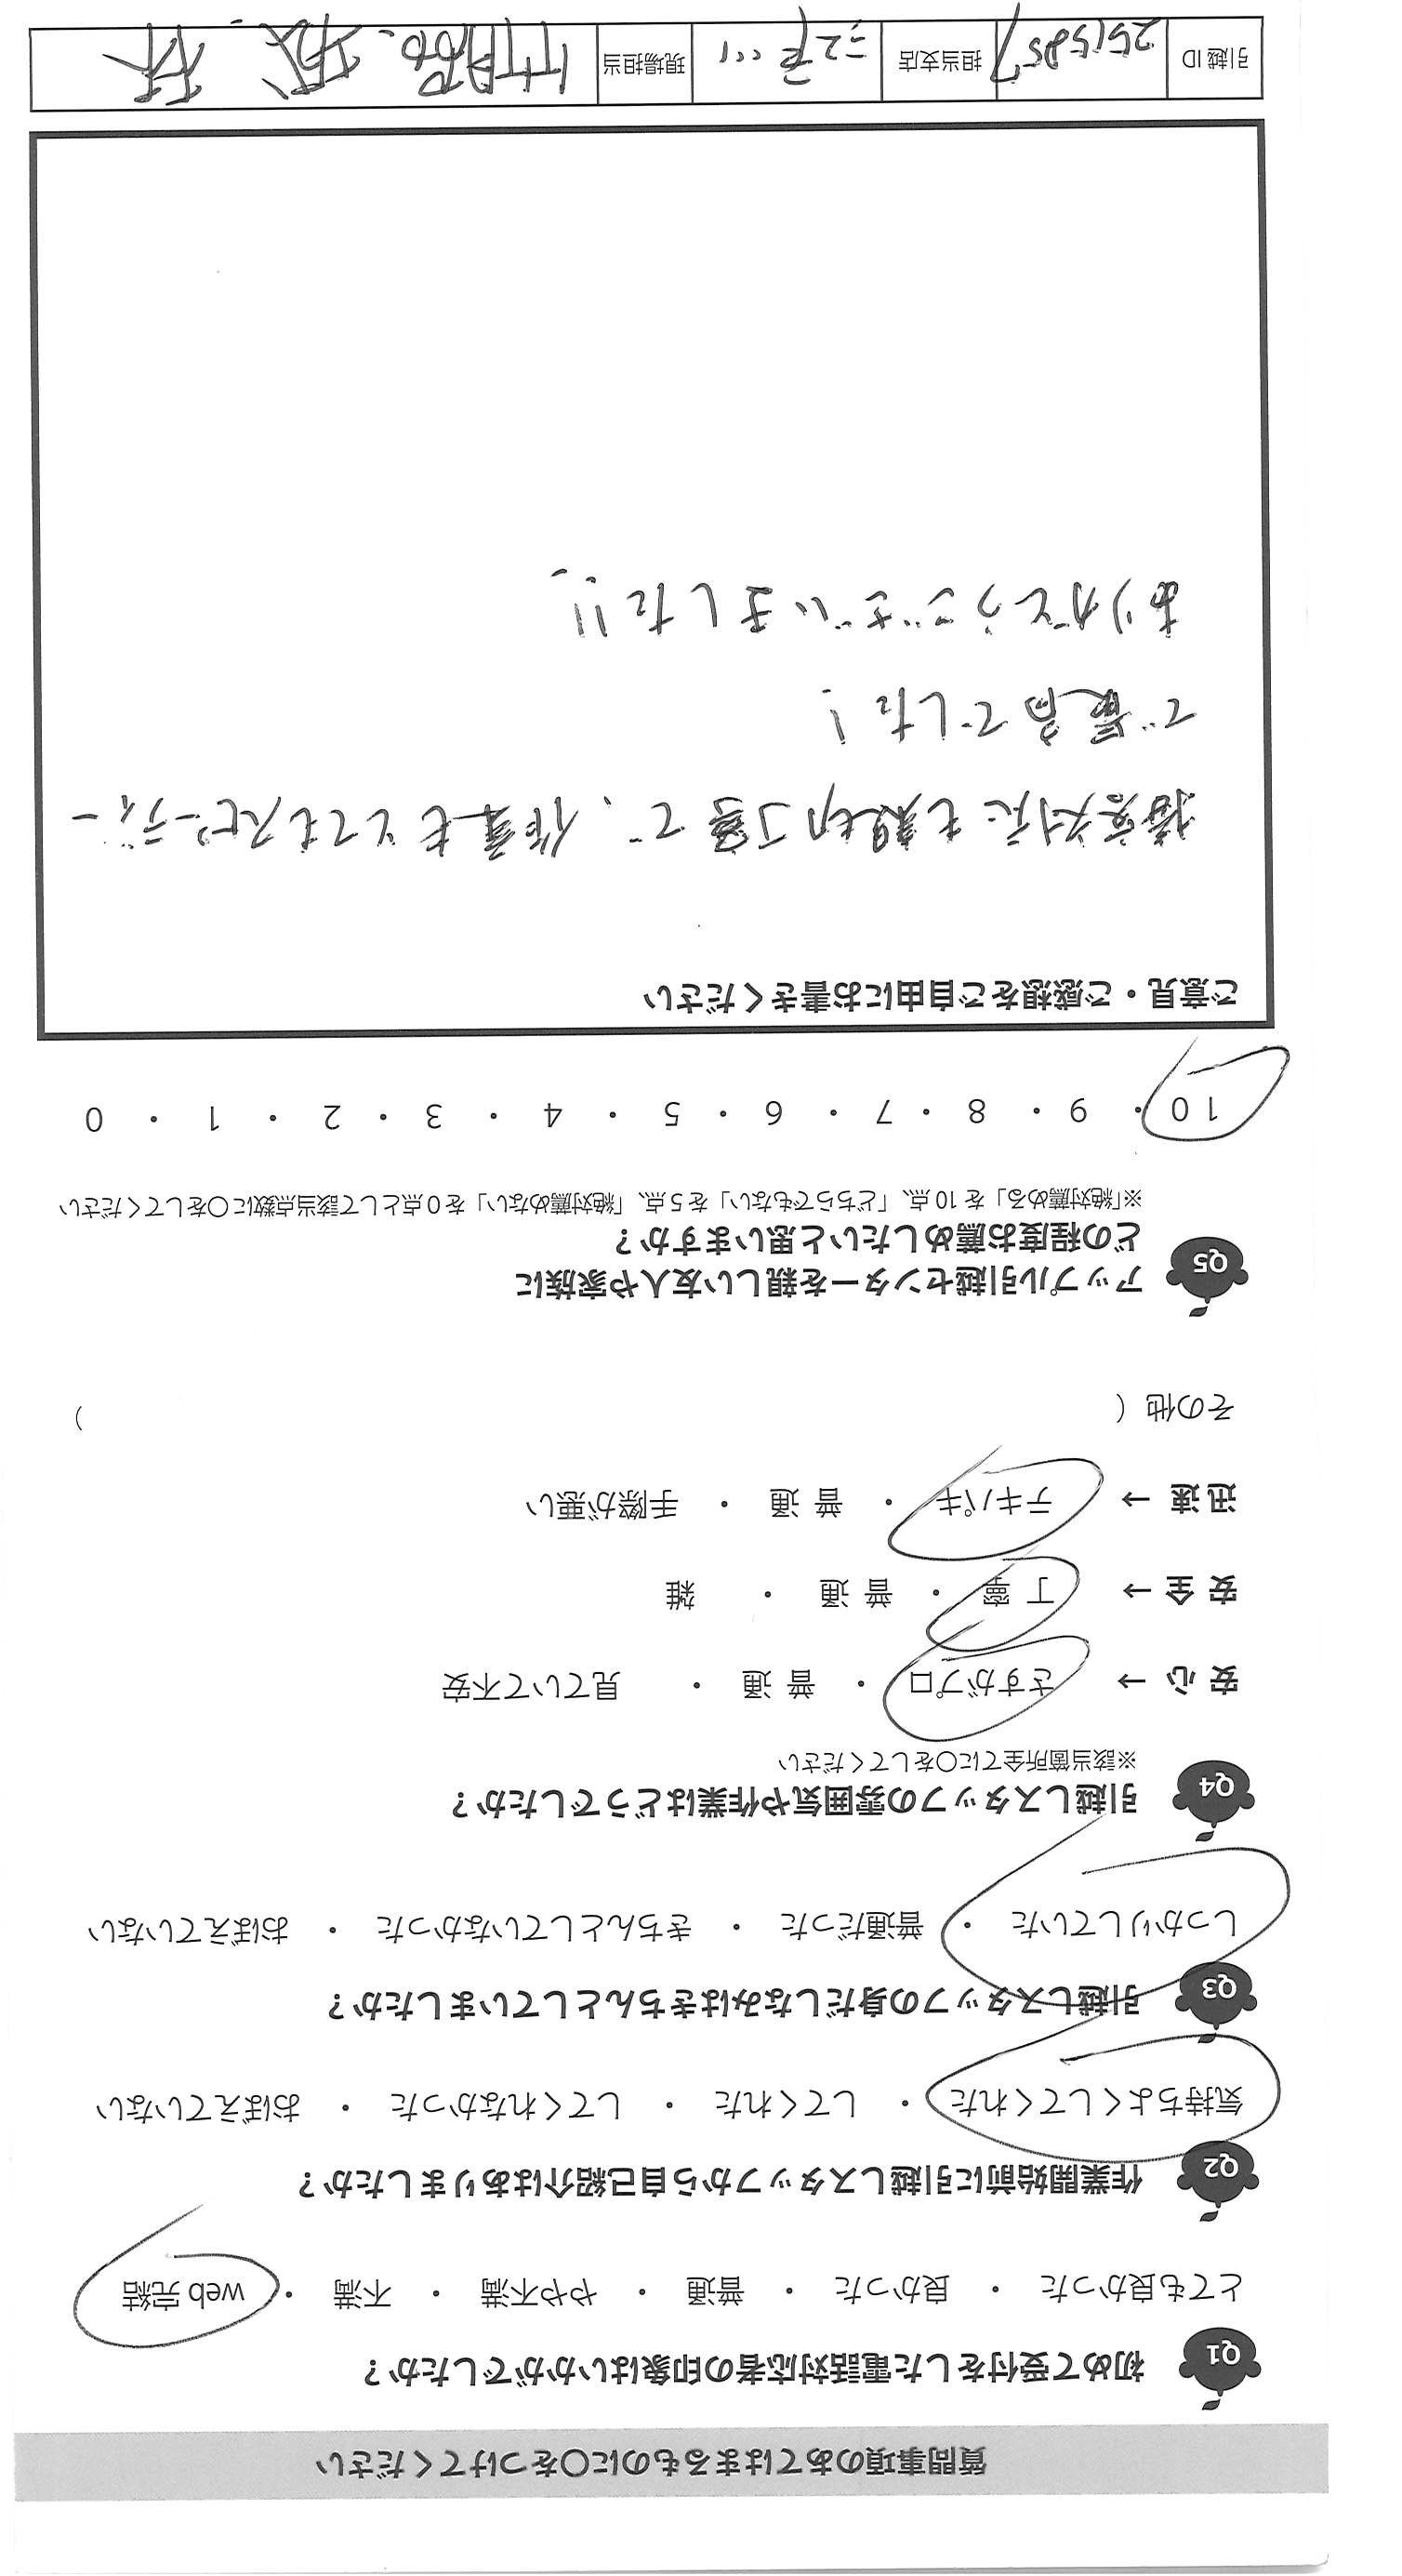 質問事項のあてはまるものに〇をつけてください
Q1 初めて受付をした電話対応者の印象はいかがでしたか？
とても良かった ・ 良かった ・ 普通 ・ やや不満 ・ 不満 ・ web 完結
Q2 作業開始前に引越しスタッフから自己紹介はありましたか？
気持ちよくしてくれた ・ してくれた ・ してくれなかった ・ おぼえていない
Q3 引越しスタッフの身だしなみはきちんとしていましたか？
しっかりしていた ・ 普通だった ・ きちんとしていなかった ・ おぼえていない
Q4 引越しスタッフの雰囲気や作業はどうでしたか？
※該当箇所全てに〇をしてください
安 心 → さすがプロ ・ 普 通 ・ 見ていて不安
安 全 → 丁 寧 ・ 普 通 ・ 雑
迅 速 → テキパキ ・ 普 通 ・ 手際が悪い
その他（ ）
Q5 アップル引越センターを親しい友人や家族に
どの程度お薦めしたいと思いますか？
※「絶対薦める」を 10 点、「どちらでもない」を 5 点、「絶対薦めない」を 0 点として該当点数に〇をしてください
10 ・ 9 ・ 8 ・ 7 ・ 6 ・ 5 ・ 4 ・ 3 ・ 2 ・ 1 ・ 0
ご意見・ご感想をご自由にお書きください
接客対応も親切丁寧で、作業もとてもスピーディー
で最高でした！
ありがとうございました!!
引越 ID 2515857 担当支店 現場担当 林